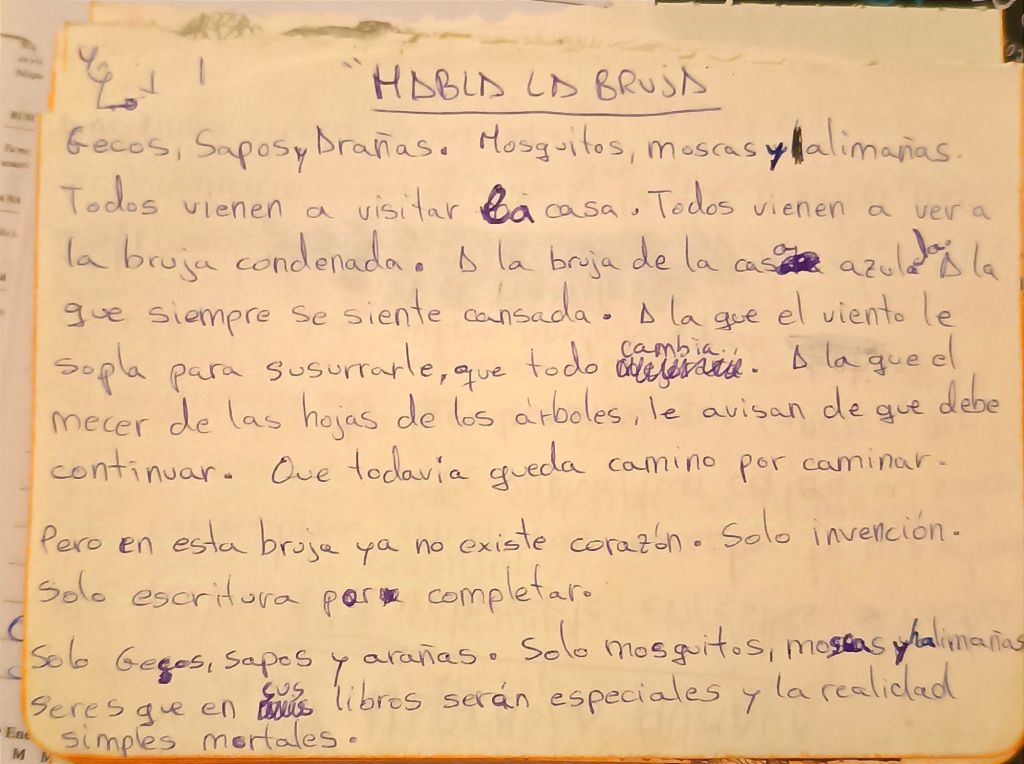 "HABLA LA BRUJA
Gecos, Sapos y Arañas. Mosquitos, moscas y alimañas.
Todos vienen a visitar la casa. Todos vienen a ver a
la bruja condenada. A la bruja de la casa azulada. A la
que siempre se siente cansada. A la que el viento le
sopla para susurrarle, que todo cambia. A la que el
mecer de las hojas de los árboles, le avisan de que debe
continuar. Que todavía queda camino por caminar.
Pero en esta bruja ya no existe corazón. Solo invención.
Solo escritura por completar.
Solo Gecos, sapos y arañas. Solo mosquitos, moscas y halimañas
seres que en sus libros serán especiales y la realidad
simples mortales.